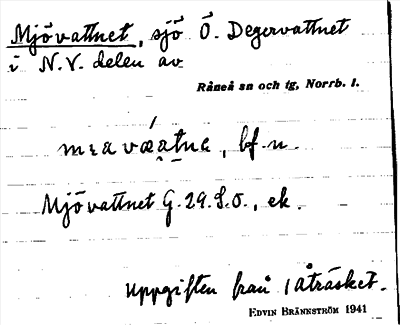 Mjövattnet, sjö Ö. Degervattnet
i N.V. delen av
Råneå sn och tg, Norrb. l.
bf. n.
Mjövattnet G. 29. S.O., ek.
Uppgiften från
EDVIN BRÄNNSTRÖM 1941